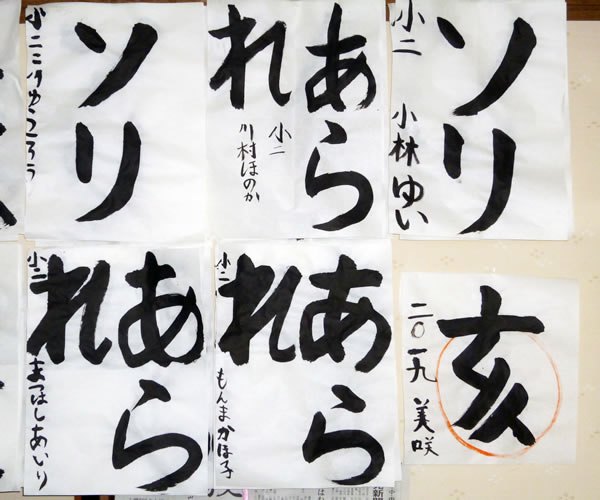 ソリ
小二
小林ゆい
あら
れ
小二
川村ほのか
ソリ
小二
亥
二〇一九
美咲
あら
れ
小二
もんまかほ子
あら
れ
小二
まつはしあいり